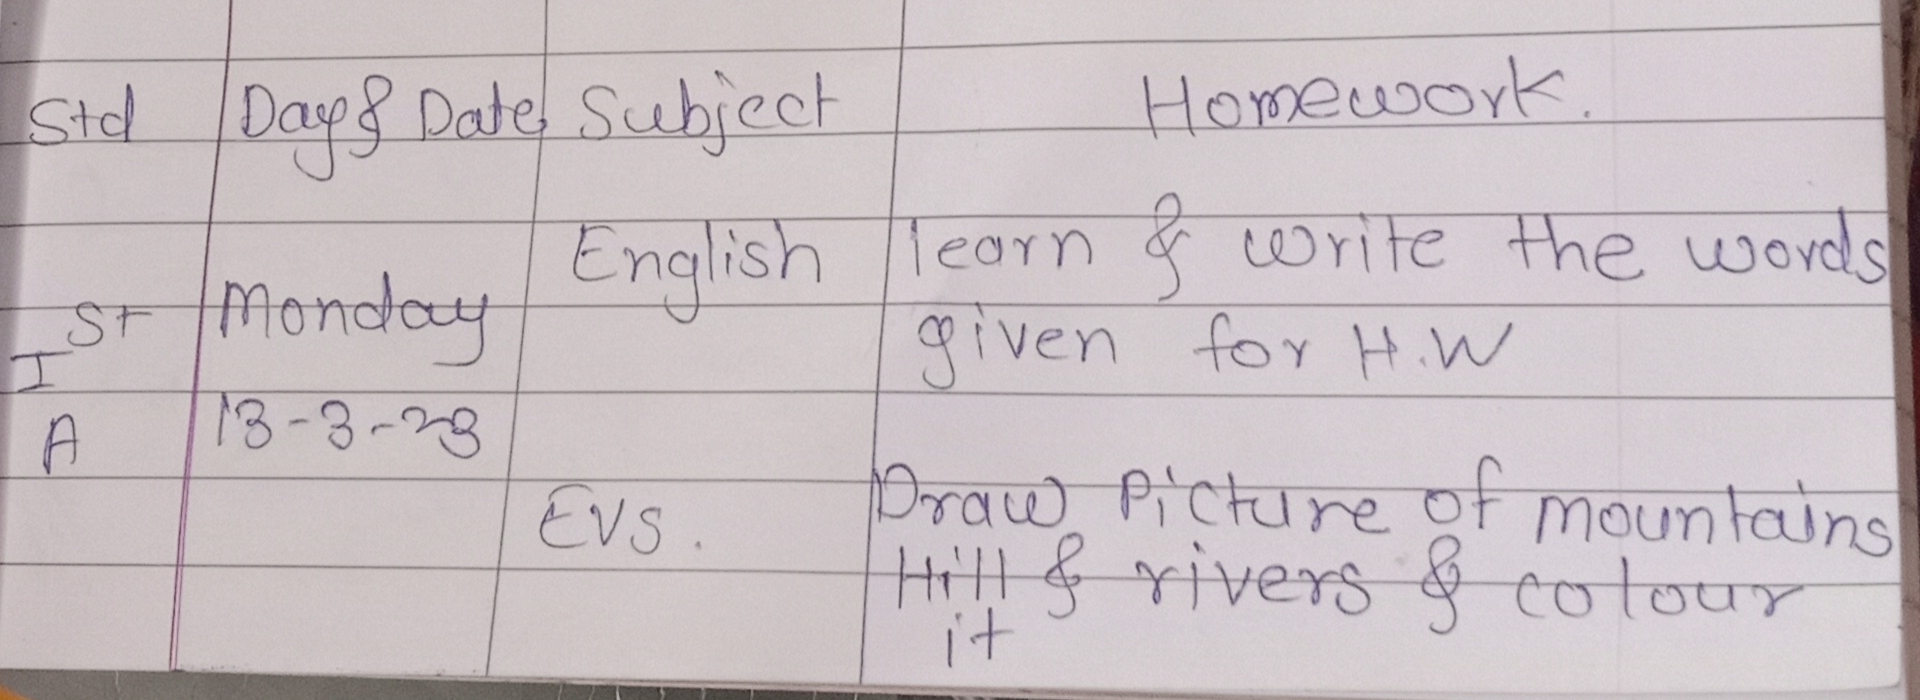 Std Day & Date Subject Homework.
English learn & write the words
I st Monday given for H.W
A 13-3-23
EVS. Draw Picture of mountains
Hill & rivers & colour
it